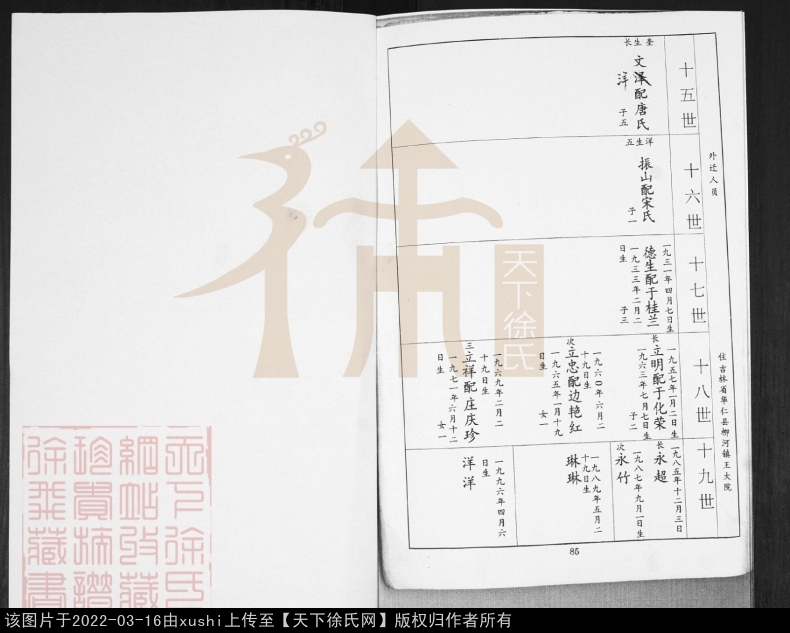 外迁人员
住吉林省华仁县柳河镇王大院
十五世
奎生长
文泽配唐氏
洋
子五
十六世
洋生五
振山配宋氏
子一
十七世
一九三一年四月七日生
德生配于桂兰
一九三三年二月二
日生
子三
十八世
一九五七年一月二日生
长
立明配于化荣
一九六三年七月七日生
子二
一九六〇年六月二
十九日生
次
立忠配边艳红
一九六五年一月十九
日生
女一
一九六九年二月二
十九日生
三
立祥配庄庆珍
一九七一年六月十二
日生
女一
十九世
一九八五年十二月三日
长
永超
一九八七年九月一日生
次
永竹
一九八九年五月二
十九日生
琳琳
一九九六年四月六
日生
洋洋
85
天下徐氏
天下徐氏
网站收藏
珍贵族谱
徐我藏书
该图片于2022-03-16由xushi上传至【天下徐氏网】版权归作者所有